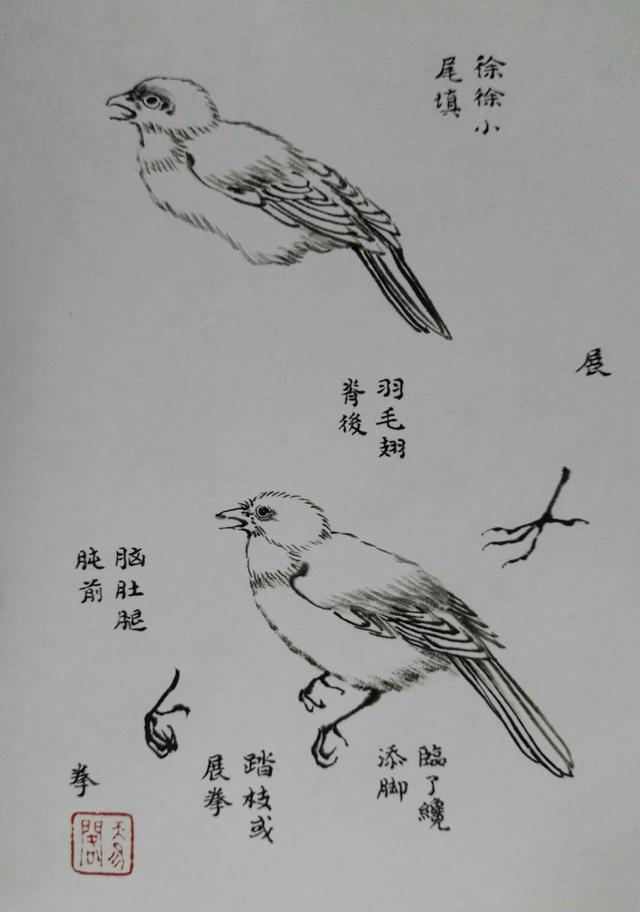 徐徐小
尾填
展
羽毛翅
脊後
脑肚腿
肫前
臨了纔
添脚
踏枝或
展拳
拳
天易
閣